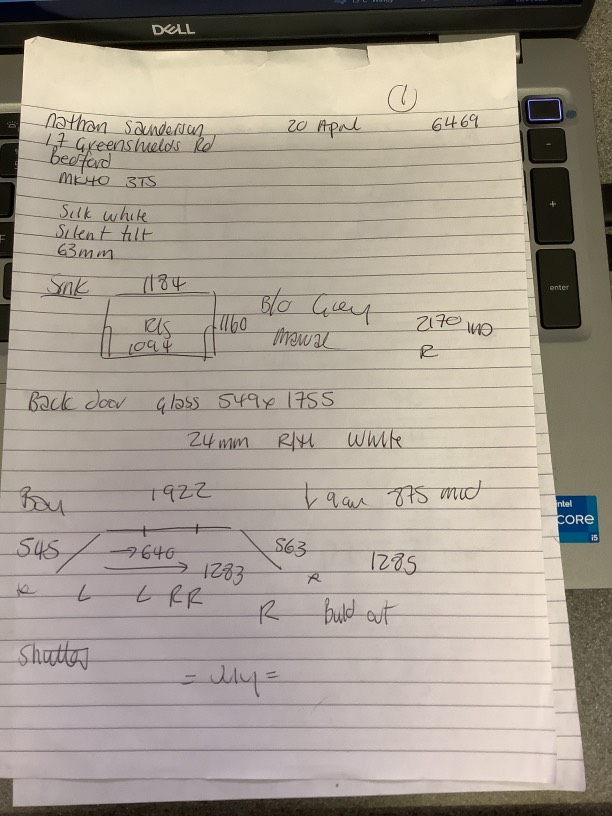 DELL
①
Nathan Saunderson 20 April 6469
17 Greenshields Rd
Bedford
MK40 3TS
Silk white
Silent tilt
63mm
1184
B/O Grey
1160
1094
Manual
2170
R
Back door glass 549 x 1755
24mm R/H White
Bay 1922 ↓ 9am 875 mid
545 → 640 563
→ 1283 1285
R L L RR R
R Build out
Shutters
intel
CORE
i5
-
+
enter